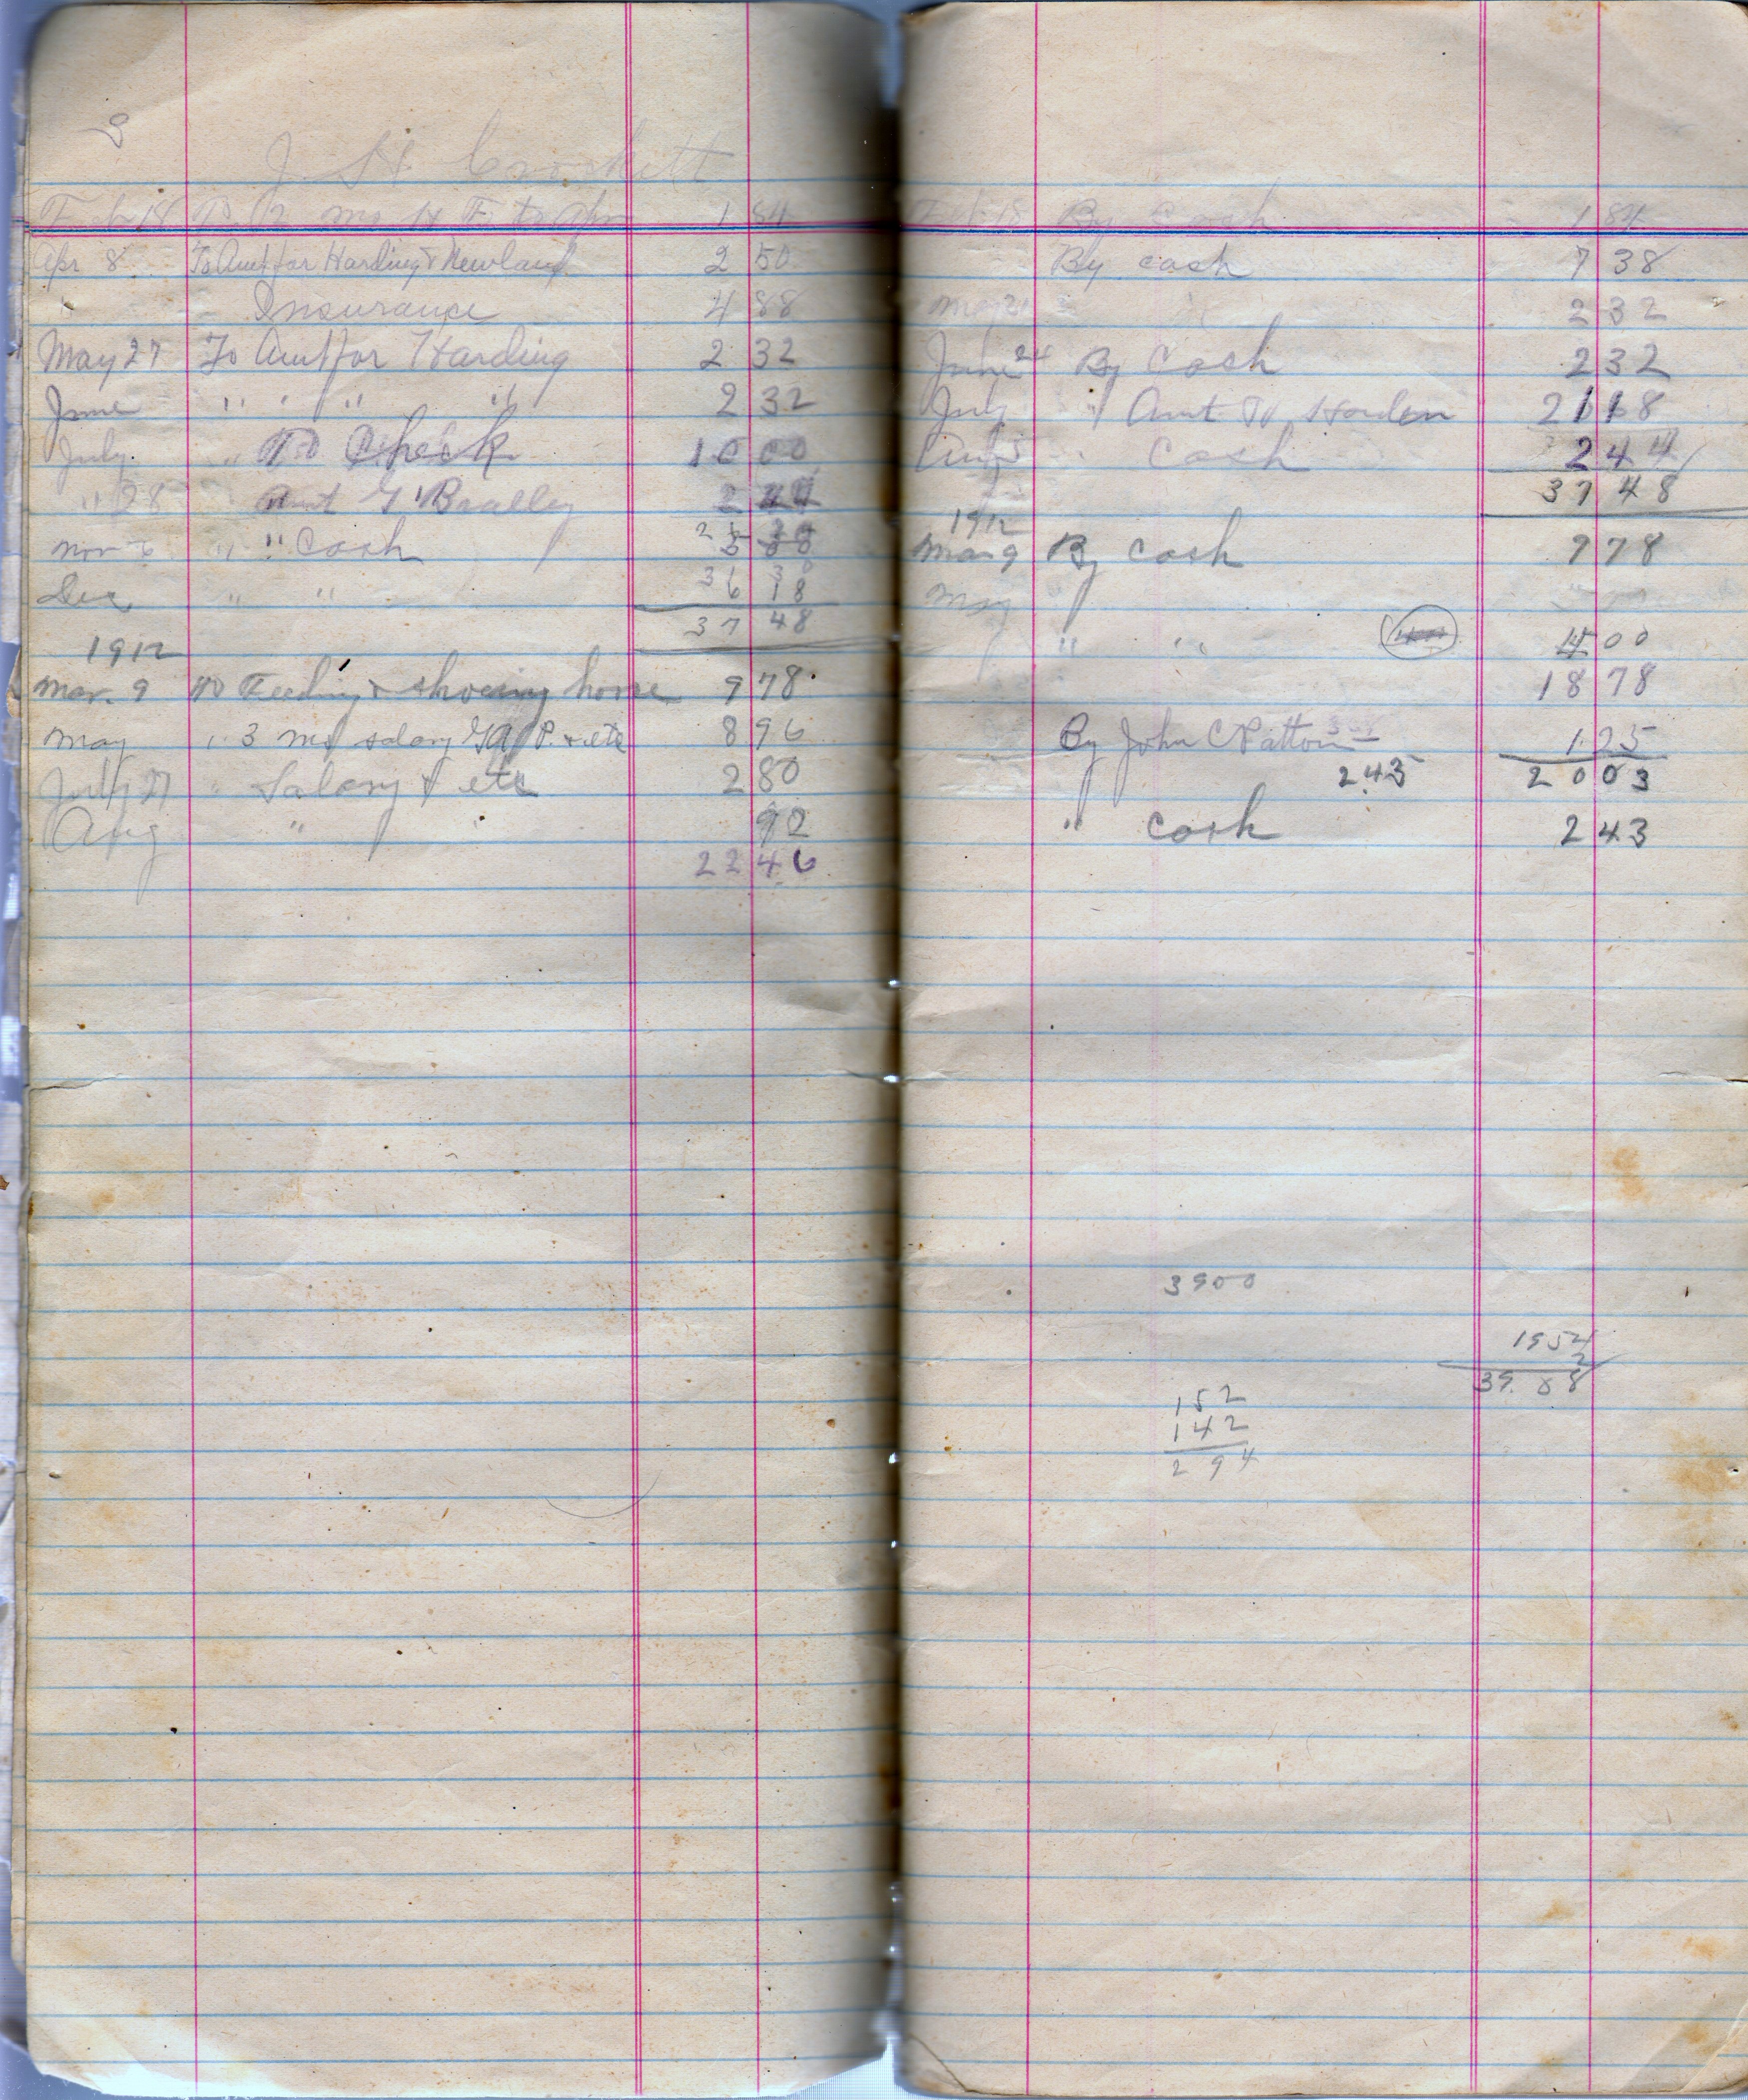 8
J. H. Crockett
Feb 18 To 2 mo 1 84
Apr 8 To Amt for Harding & Newland 2 50
" Insurance 4 88
May 27 To Amt for Harding 2 32
June " " " " 2 32
July " To Check 10 00
" 28 Amt G Bradley 2 44
Nov " " Cash
Dec " " 6 18
37 48
1912
Mar. 9 To Feeding & shoeing horse 9 78
May " 3 mo salary & etc 8 96
July 27 " Salary & etc 2 80
Aug " " 92
22 46
Feb 18 By Cash 1 84
By cash 7 38
May 2 32
June 24 By Cash 2 32
July " Amt 21 18
Cash 2 44
37 48
1912
Mar 9 By cash 9 78
May
" " 4 00
18 78
By John C Patton 1 25
2 43 20 03
" cash 2 43
3900
1954
2
39.08
152
142
294